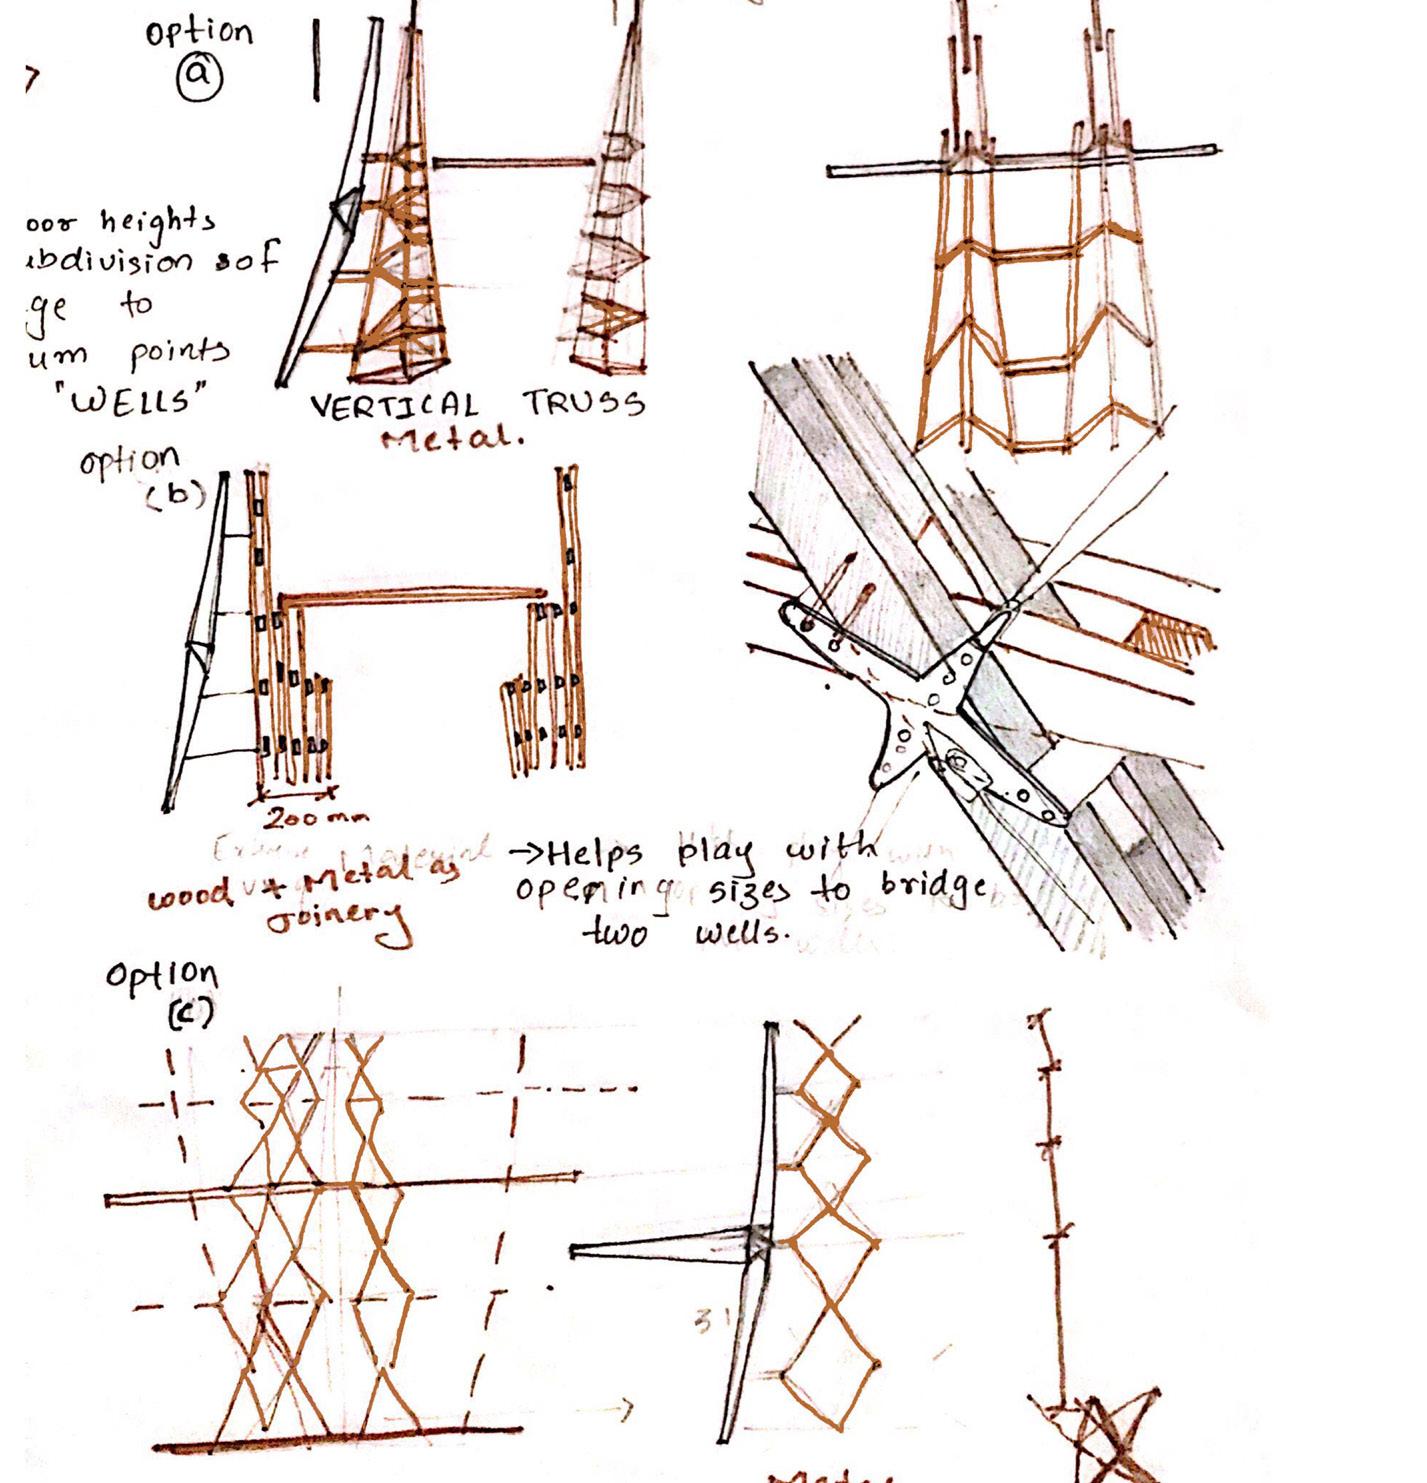 option
a
oor heights
bdivision sof
ge to
um points
"WELLS"
VERTICAL TRUSS
Metal.
option
(b)
200 mm
wood + Metal as
Joinery
→Helps play with
opening sizes to bridge
two wells.
option
(c)
31